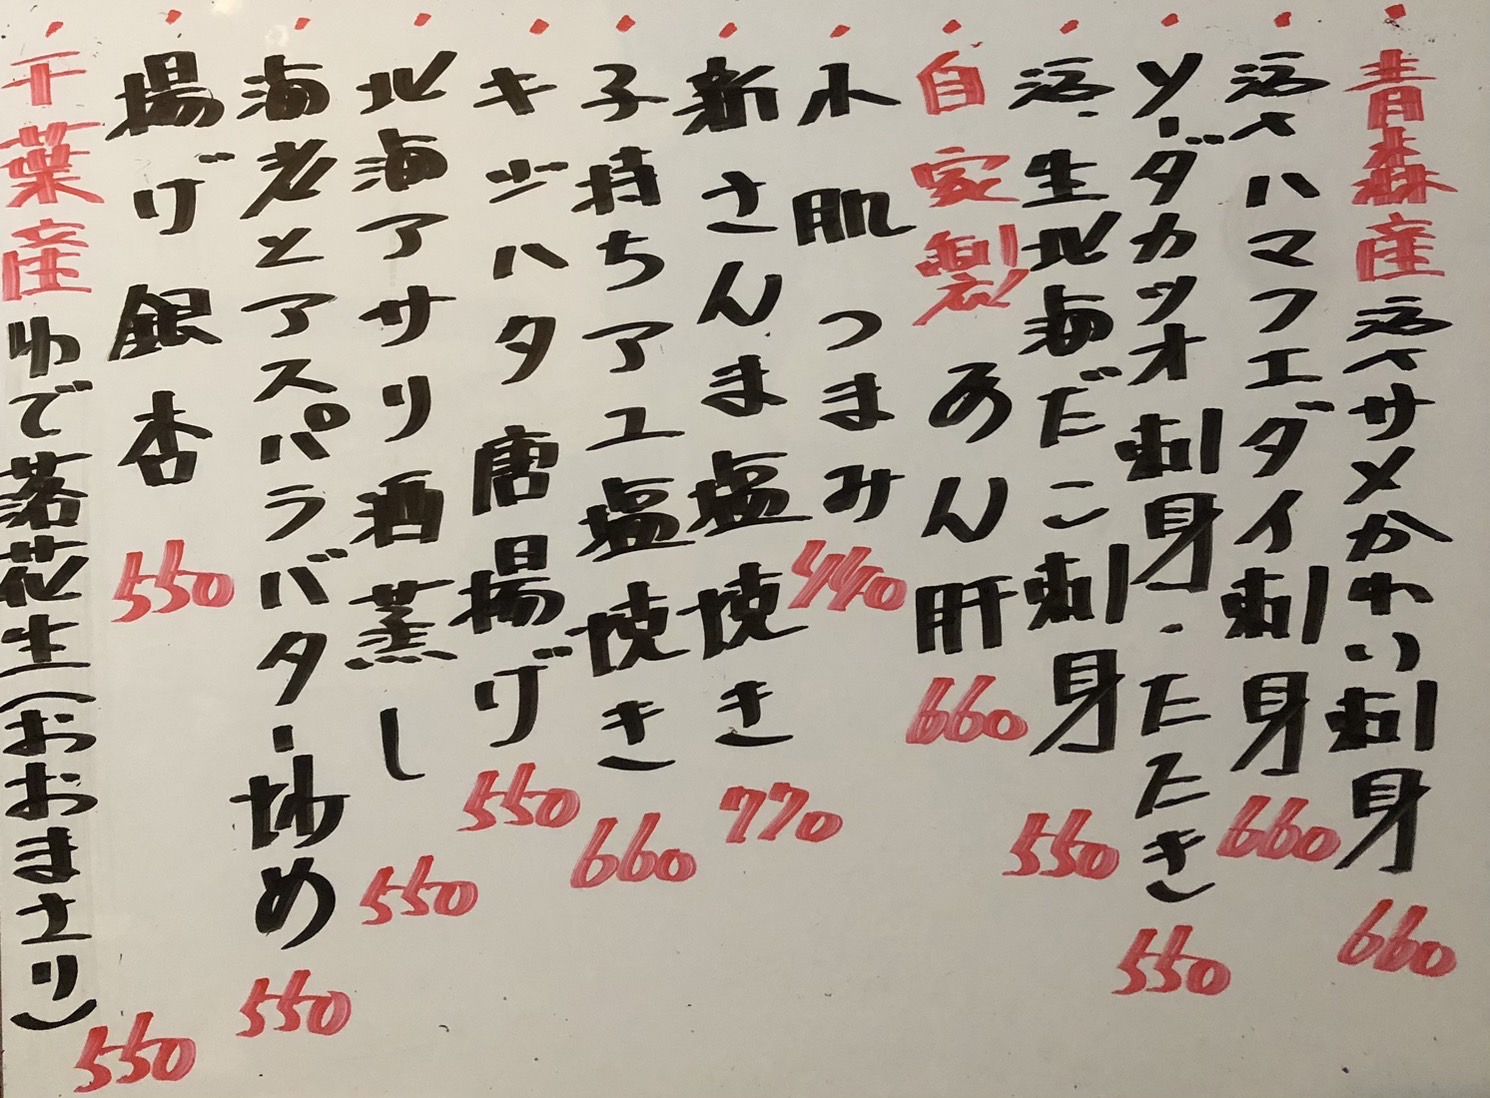 青森産活〆サメかれい刺身 660
活〆ハマフエダイ刺身 660
ソーダカツオ刺身・たたき 550
活・生北海だこ刺身 550
自家製あん肝 660
小肌つまみ 440
新さんま塩焼き 770
子持ちアユ塩焼き 660
キジハタ唐揚げ 550
北海アサリ酒蒸し 550
海老とアスパラバター炒め 550
揚げ銀杏 550
千葉産ゆで落花生(おおまさり) 550